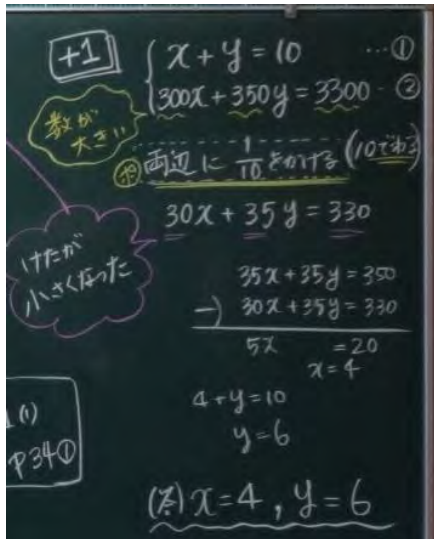 +1
x + y = 10 …①
300x + 350y = 3300 ・②
数が
大きい
ポ 両辺に 1/10 をかける (10でわる)
30x + 35y = 330
けたが
小さくなった
35x + 35y = 350
−) 30x + 35y = 330
5x = 20
x = 4
4 + y = 10
y = 6
1 (1)
P34①
(答) x = 4 , y = 6